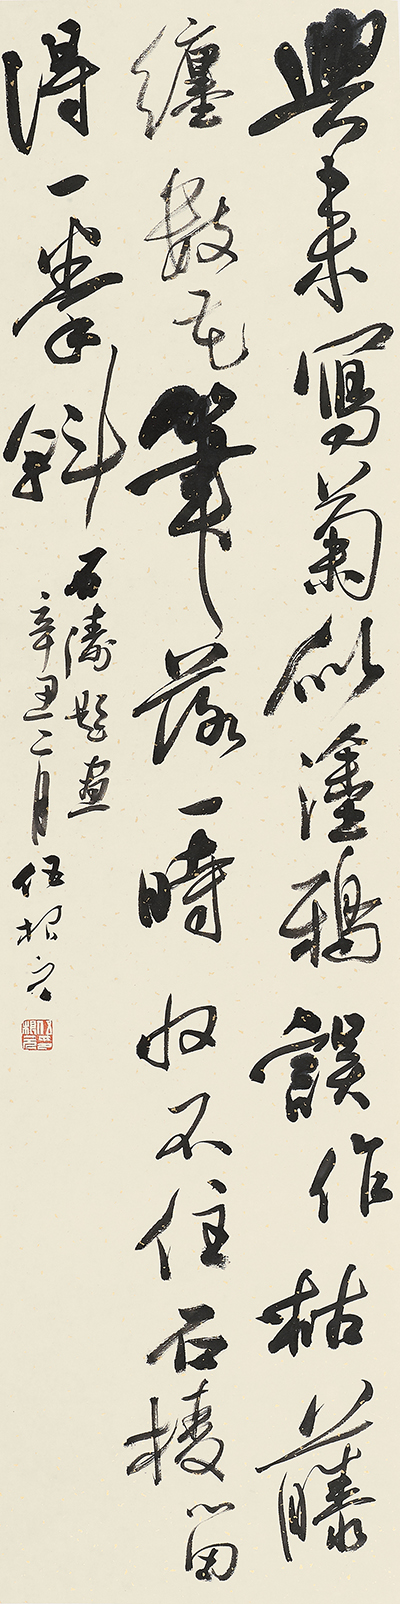 興來寫菊似塗鴉誤作枯藤
纏數花筆落一時收不住石棱留
得一拳斜
石濤題畫
辛丑二月伍